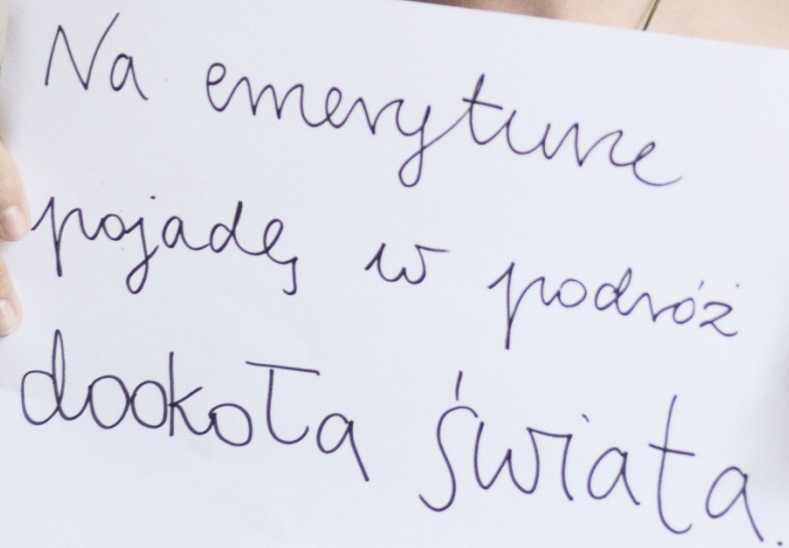 Na emeryturze
pojadę w podróż
dookoła świata.